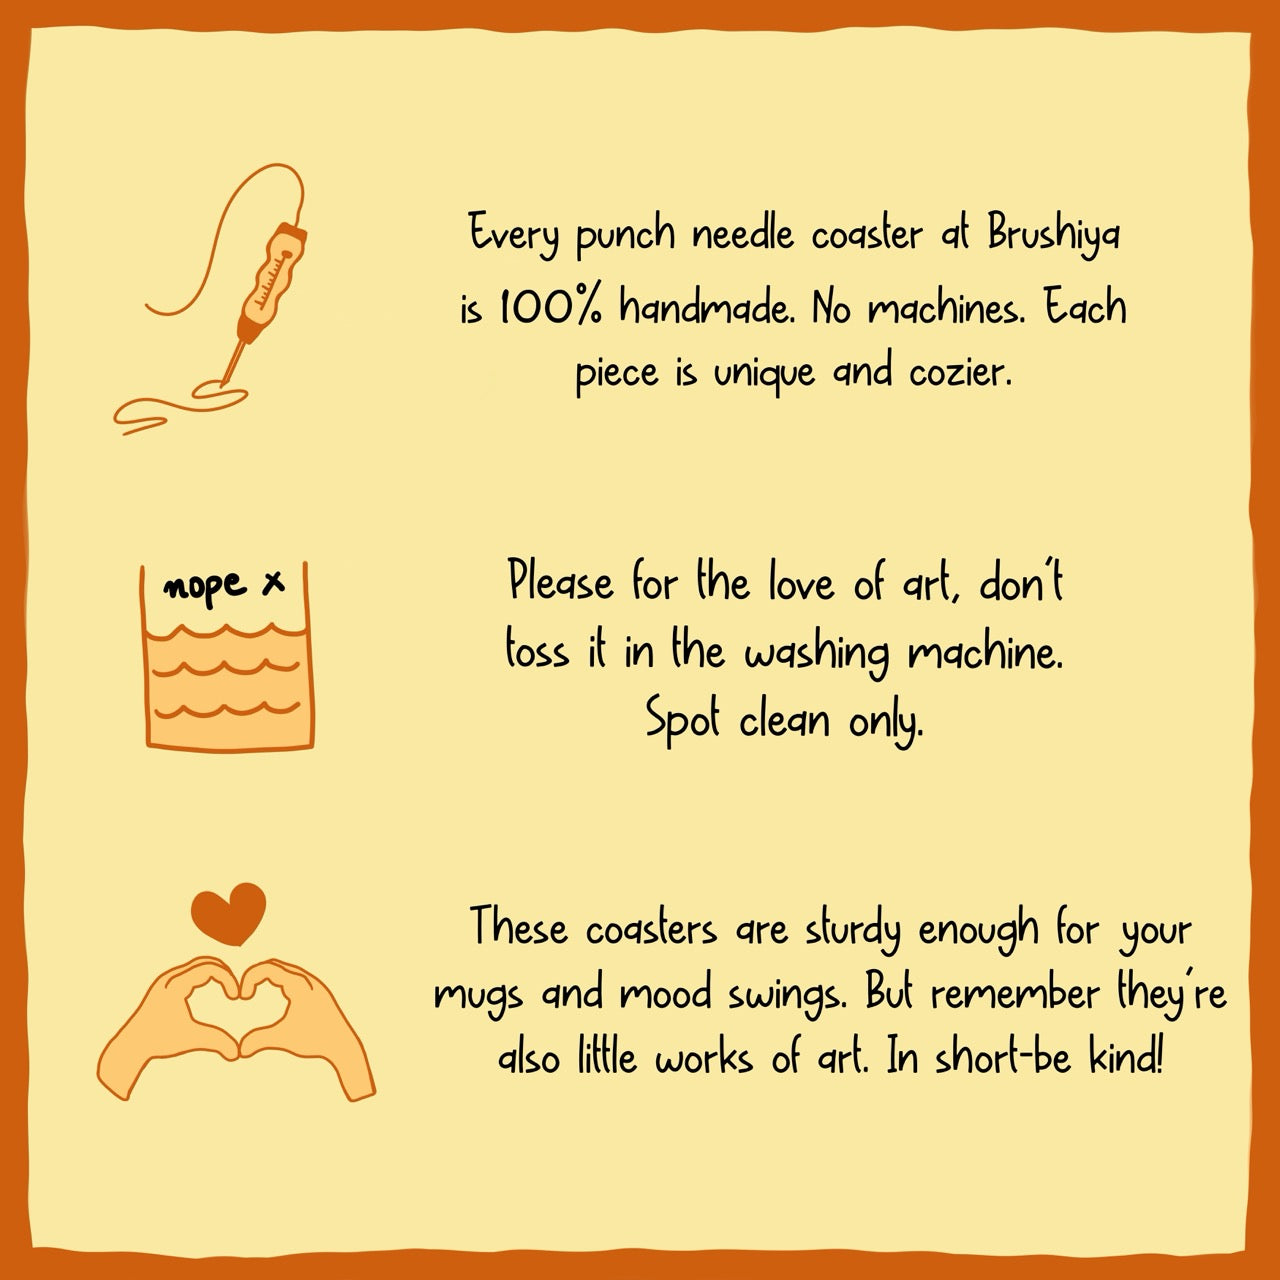 Every punch needle coaster at Brushiya
is 100% handmade. No machines. Each
piece is unique and cozier.
nope x
Please for the love of art, don't
toss it in the washing machine.
Spot clean only.
These coasters are sturdy enough for your
mugs and mood swings. But remember they're
also little works of art. In short-be kind!